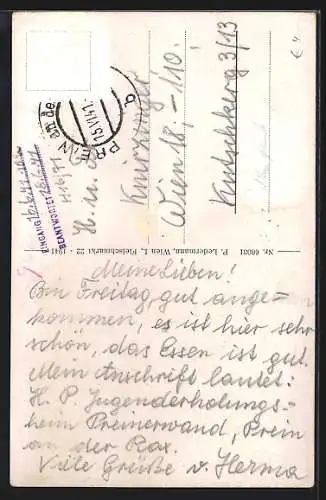 PREIN an de
15.VI.41
b
EINGANG
BEANTWORTET
H. u.
Kurzinger
Wien 18, -110.
Kutschkerg 3/13
€ 4
Nr. 66031 P. Ledermann, Wien I, Fleischmarkt 22 - 1941
Meine Lieben!
Bin Freitag gut ange=
kommen, es ist hier sehr
schön, das Essen ist gut.
Mein Anschrift lautet:
H. P. Jugenderholungs=
heim Preinerwand, Prein
an der Rax.
Viele Grüße v. Herma